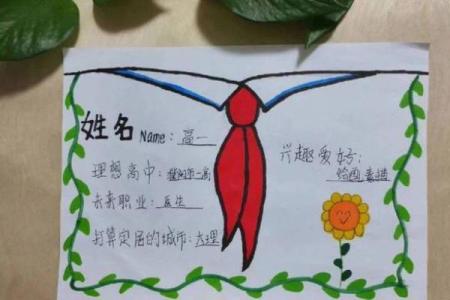 姓名 Name：高一
兴趣爱好：
绘画
理想高中：第一高
未来职业：医生
打算定居的城市：大理